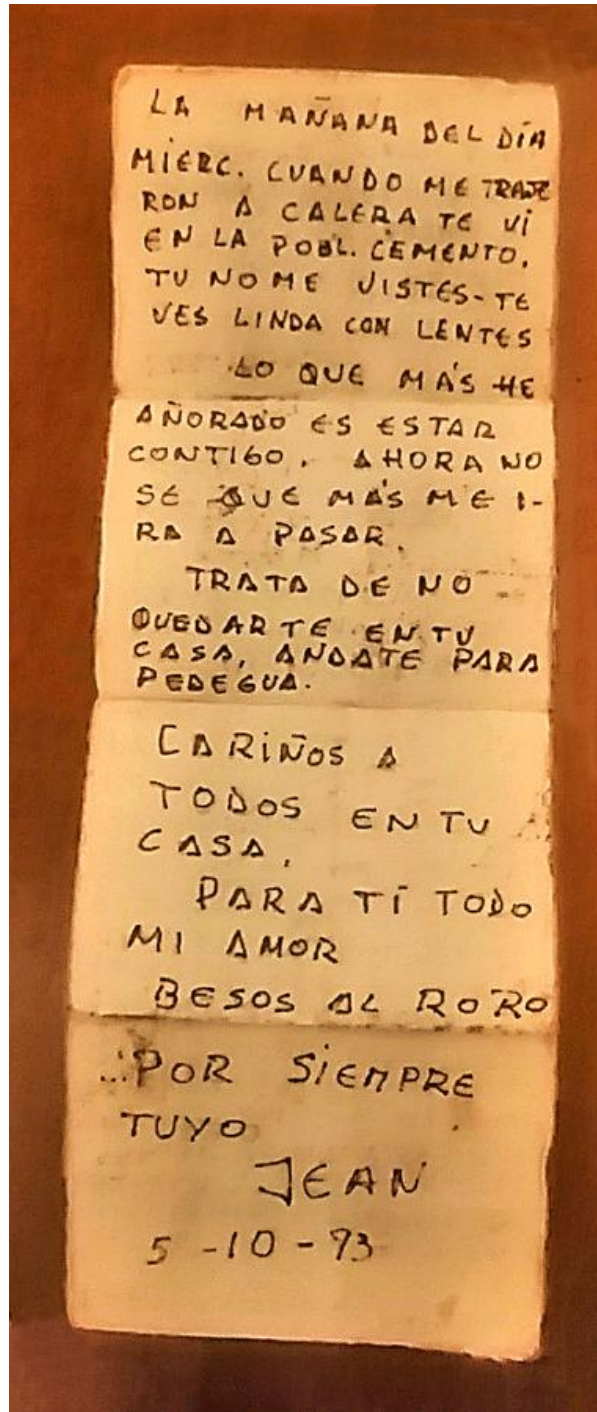 LA MAÑANA DEL DÍA
MIERC. CUANDO ME TRAJE
RON A CALERA TE VÍ
EN LA POBL. CEMENTO,
TU NO ME VISTES-TE
VES LINDA CON LENTES
LO QUE MÁS HE
AÑORADO ES ESTAR
CONTIGO. AHORA NO
SÉ QUE MÁS ME I-
RA A PASAR.
TRATA DE NO
QUEDARTE EN TU
CASA, ANDATE PARA
PEDEGUA.
CARIÑOS A
TODOS EN TU
CASA.
PARA TÍ TODO
MI AMOR
BESOS AL RORO
...POR SIEMPRE
TUYO
JEAN
5-10-73